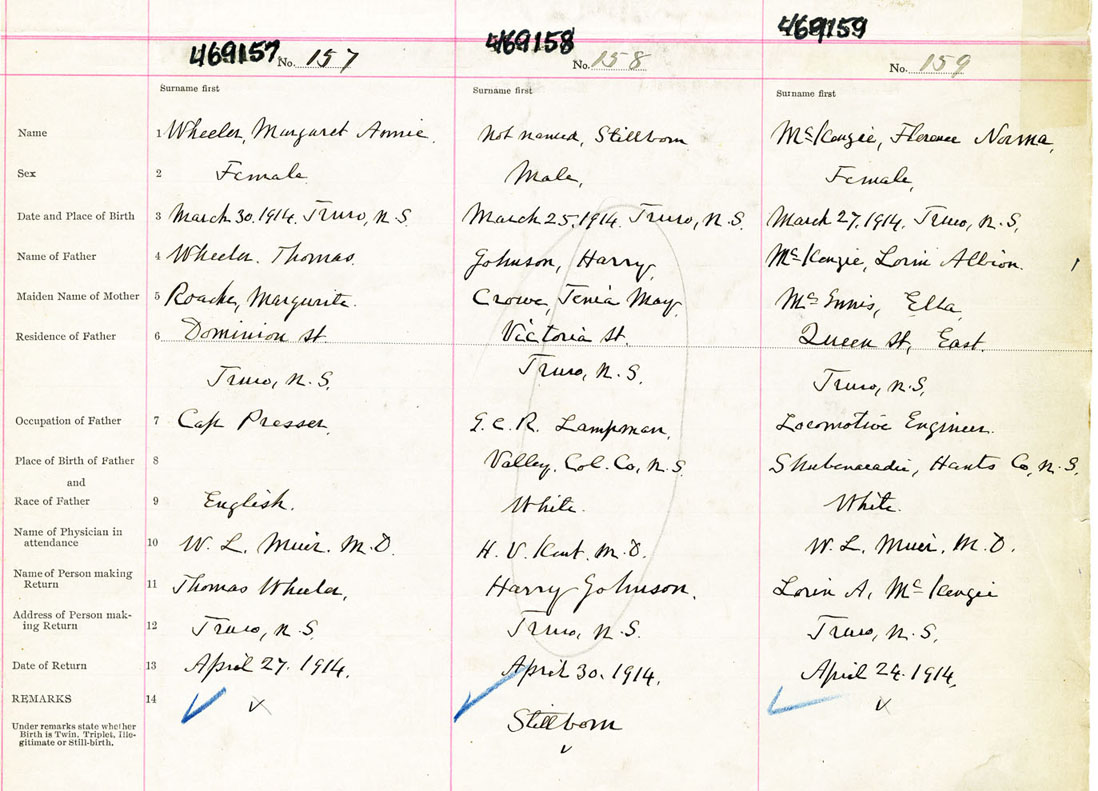 469157 No. 157 469158 No. 158 469159 No. 159
Surname first Surname first Surname first
Name 1 Wheeler, Margaret Annie. Not named, Stillborn McKenzie, Florence Norma,
Sex 2 Female Male, Female,
Date and Place of Birth 3 March 30, 1914. Truro, N.S. March 25, 1914. Truro, N.S. March 27, 1914. Truro, N.S.
Name of Father 4 Wheeler, Thomas. Johnson, Harry, McKenzie, Lorin Albion.
Maiden Name of Mother 5 Roache, Margurite. Crowe, Tenia May, McInnis, Ella,
Residence of Father 6 Dominion St. Victoria St. Queen St, East.
Truro, N.S. Truro, N.S. Truro, N.S,
Occupation of Father 7 Cap Presser, G.C.R. Lampman, Locomotive Engineer.
Place of Birth of Father 8 Valley, Col. Co, N.S. Shubenacadie, Hants Co, N.S.
and
Race of Father 9 English. White. White.
Name of Physician in
attendance 10 W. L. Muir. M.D. H. V. Kent. M.D. W. L. Muir. M.D.
Name of Person making
Return 11 Thomas Wheeler, Harry Johnson. Lorin A, McKenzie
Address of Person mak-
ing Return 12 Truro, N.S. Truro, N.S. Truro, N.S.
Date of Return 13 April 27. 1914. April 30. 1914. April 24. 1914,
REMARKS 14
Under remarks state whether
Birth is Twin, Triplet, Ille-
gitimate or Still-birth.
Stillborn